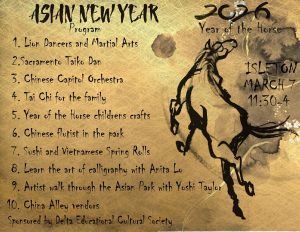 ASIAN NEW YEAR
Program
1. Lion Dancers and Martial Arts
2.Sacramento Taiko Dan
3. Chinese Capitol Orchestra
4. Tai Chi for the family
5. Year of the Horse childrens crafts
6. Chinese flutist in the park
7. Sushi and Vietnamese Spring Rolls
8. Learn the art of calligraphy with Anita Lo
9. Artist walk through the Asian Park with Yoshi Taylor
10. China Alley vendors
Sponsored by Delta Educational Cultural Society
2026
Year of the Horse
ISLETON
MARCH 7
11:30-4